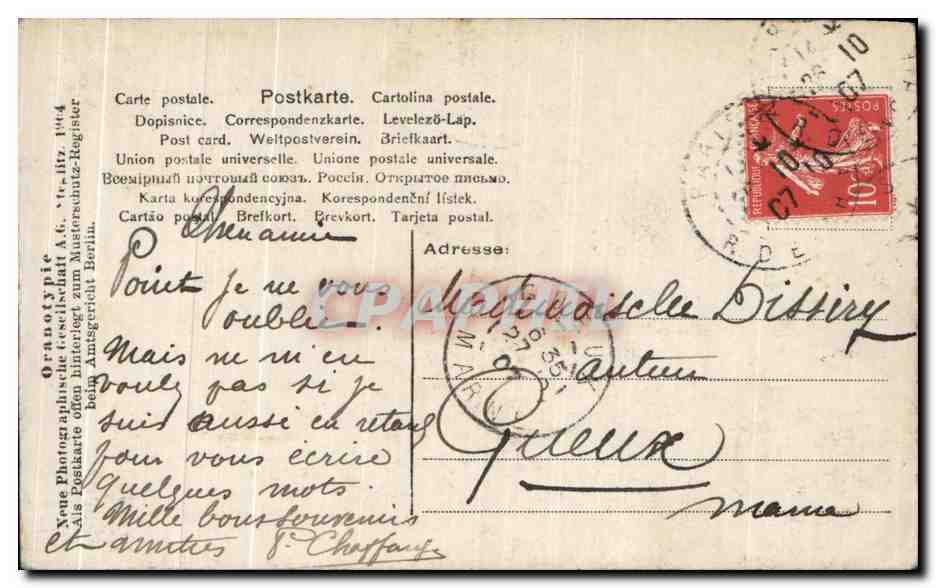 Carte postale. Postkarte. Cartolina postale.
Dopisnice. Correspondenzkarte. Levelező-Lap.
Post card. Weltpostverein. Briefkaart.
Union postale universelle. Unione postale universale.
Всемірный почтовый союзъ. Россія. Открытое письмо.
Karta korespondencyjna. Korespondenční lístek.
Cartão postal. Brefkort. Brevkort. Tarjeta postal.
Chère amie
Point je ne vous
oublie.
Mais ne m'en
voulez pas si je
suis aussi en retard
pour vous écrire
quelques mots.
Mille bons souvenirs
et amitiés
Adresse:
Mademoiselle Dissiry
Gueux
Marne
Oranotypie
Neue Photographische Gesellschaft A.G. Steglitz 1904
Als Postkarte offen hinterlegt zum Musterschutz-Register
beim Amtsgericht Berlin.
REPUBLIQUE FRANÇAISE
POSTES
10
10
07
MARNE
CPARAMA